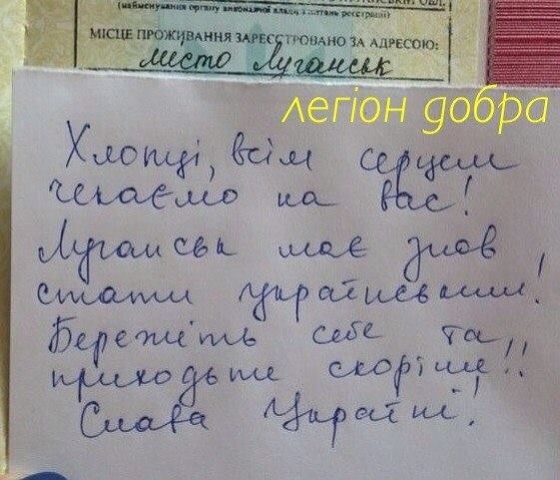 (найменування органу виконавчої влади з питань реєстрації)
МІСЦЕ ПРОЖИВАННЯ ЗАРЕЄСТРОВАНО ЗА АДРЕСОЮ:
місто Луганськ
легіон добра
Хлопці, всім серцем
чекаємо на вас!
Луганськ має знов
стати українським!
Бережіть себе та
приходьте скоріше!!
Слава Україні!